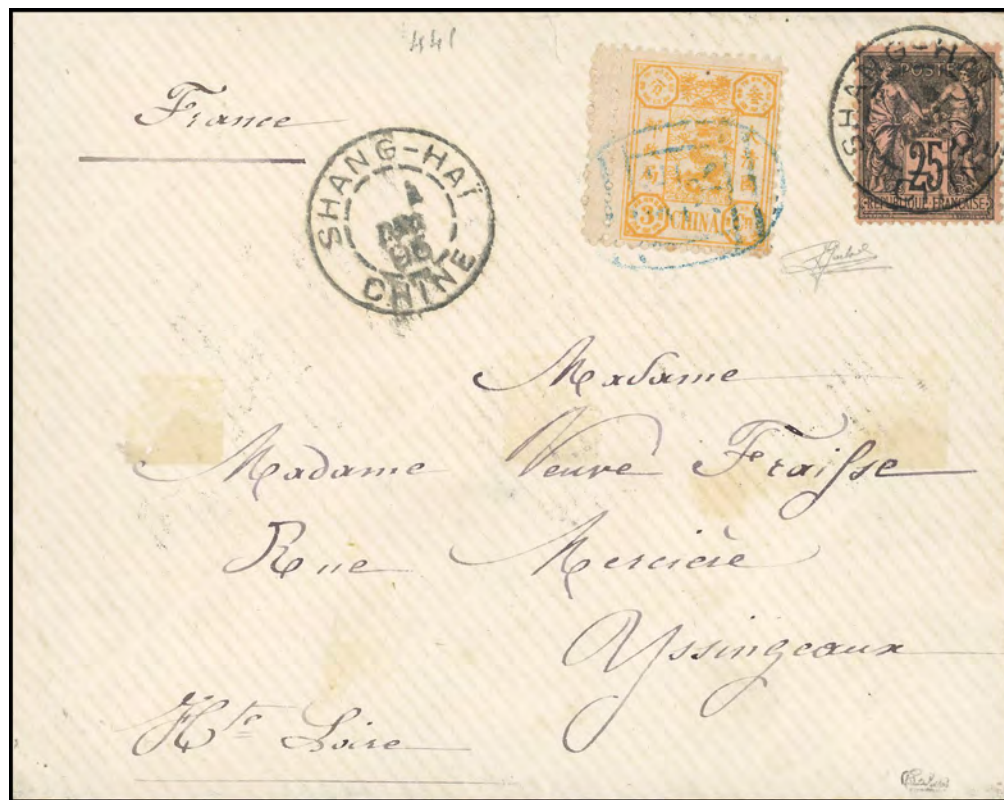 441
France
SHANG-HAÏ
1
DEC
95
CHINE
3
CHINA
SHANG-HAI
POSTE
25
REPUBLIQUE FRANÇAISE
Madame
Madame Veuve Fraisse
Rue Mercière
Yssingeaux
Hte Loire